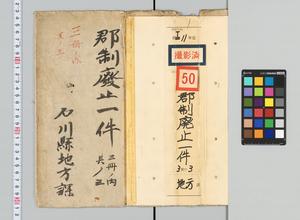 郡制廢止一件
三冊ノ内
其ノ三
石川縣地方課
撮影済
50
郡制廃止一件
3-3
地方